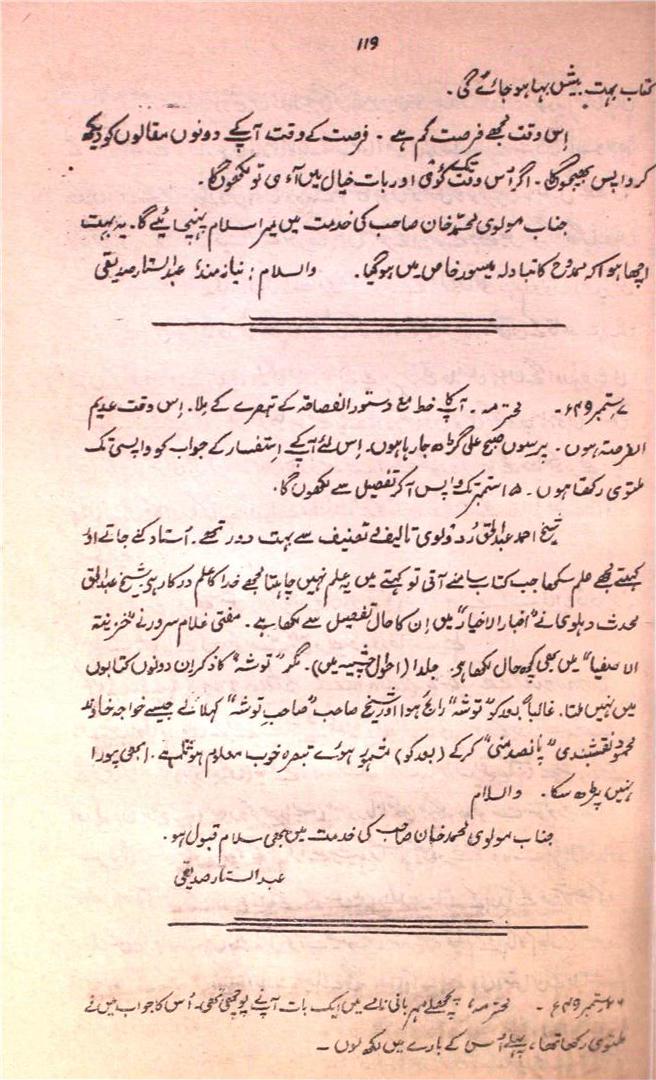 119
کتاب بہت بیش بہا ہو جائے گی۔
اِس وقت مجھے فرصت کم ہے ۔ فرصت کے وقت آپ کے دونوں مقالوں کو دیکھ
کر واپس بھیجوں گا۔ اگر اُس وقت تک کوئی اور بات خیال میں آئی تو لکھوں گا۔
جناب مولوی محمد خان صاحب کی خدمت میں میرا سلام پہنچائیے گا۔ یہ بہت
اچھا ہوا کہ ممدوح کا تبادلہ میسور خاص میں ہو گیا۔ والسلام؛ نیاز مند، عبدالستار صدیقی
۷ ستمبر ۴۹ء۔ محترمہ۔ آپ کا خط مع دستور الفصاحۃ کے تبصرے کے ملا۔ اِس وقت عدیم
الفرصت ہوں۔ پرسوں صبح علی گڑھ جا رہا ہوں۔ اِس لئے آپ کے استفسار کے جواب کو واپسی تک
ملتوی رکھتا ہوں۔ ۱۵ ستمبر تک واپس آکر تفصیل سے لکھوں گا۔
شیخ احمد عبدالحق رُدَولوی تالیف و تصنیف سے بہت دور تھے۔ اُستاد کنے جاتے اور
کہتے مجھے علم سکھا جب کتاب سامنے آتی تو کہتے میں یہ علم نہیں چاہتا مجھے خدا کا علم درکار ہے۔ شیخ عبدالحق
محدث دہلوی نے "اخبار الاخیار" میں اِن کا حال تفصیل سے لکھا ہے۔ مفتی غلام سرور نے "خزینتہ
الاصفیا" میں بھی کچھ حال لکھا ہے۔ جلد ا (احوال چشتیہ میں)۔ مگر "توشہ" کا ذکر اِن دونوں کتابوں
میں نہیں ملتا۔ غالباً بعد کو "توشہ" رائج ہوا اور شیخ صاحب "صاحبِ توشہ" کہلائے جیسے خواجہ خاوند
محمود نقشبندی "پانصد منی" کرکے (بعد کو) مشہور ہوئے تبصرہ خوب معلوم ہوتا ہے۔ ابھی پورا
نہیں پڑھ سکا۔ والسلام
جناب مولوی محمد خان صاحب کی خدمت میں بھی سلام قبول ہو۔
عبدالستار صدیقی
۲۶ ستمبر ۴۹ء۔ محترمہ، پچھلے مہربانی نامے میں ایک بات آپ نے پوچھی تھی۔ اُس کا جواب میں نے
ملتوی رکھا تھا، پہلے اُس کے بارے میں لکھ لوں ۔